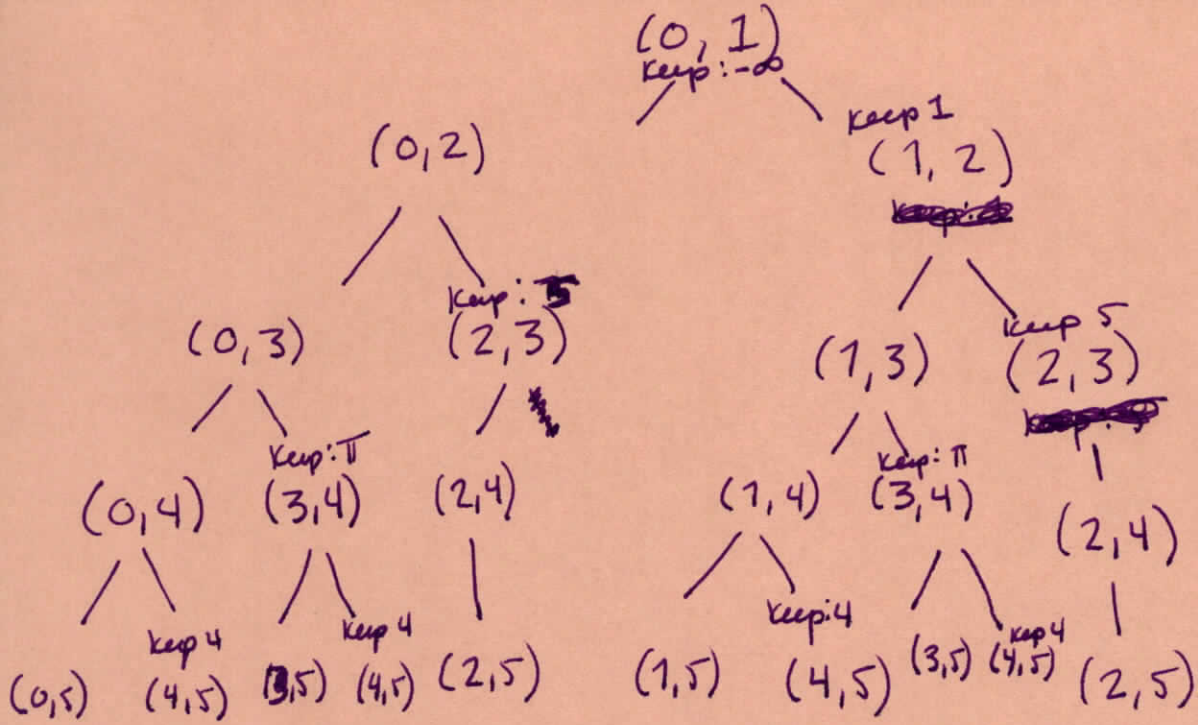 (0,1)
Keep:-∞
Keep 1
(0,2) (1,2)
Keep: 5
Keep 5
(0,3) (2,3) (1,3) (2,3)
Keep:π Keep:π
(0,4) (3,4) (2,4) (1,4) (3,4)
(2,4)
Keep 4 Keep 4 Keep:4 Keep 4
(0,5) (4,5) (3,5) (4,5) (2,5) (1,5) (4,5) (3,5) (4,5) (2,5)